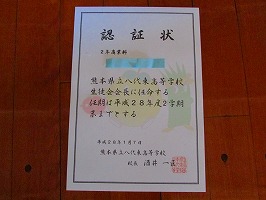 認証状
2年商業科
熊本県立八代東高等学校
生徒会会長に任命する
任期は平成28年度2学期
末までとする
平成28年1月7日
熊本県立八代東高等学校
校長 酒井 一匡